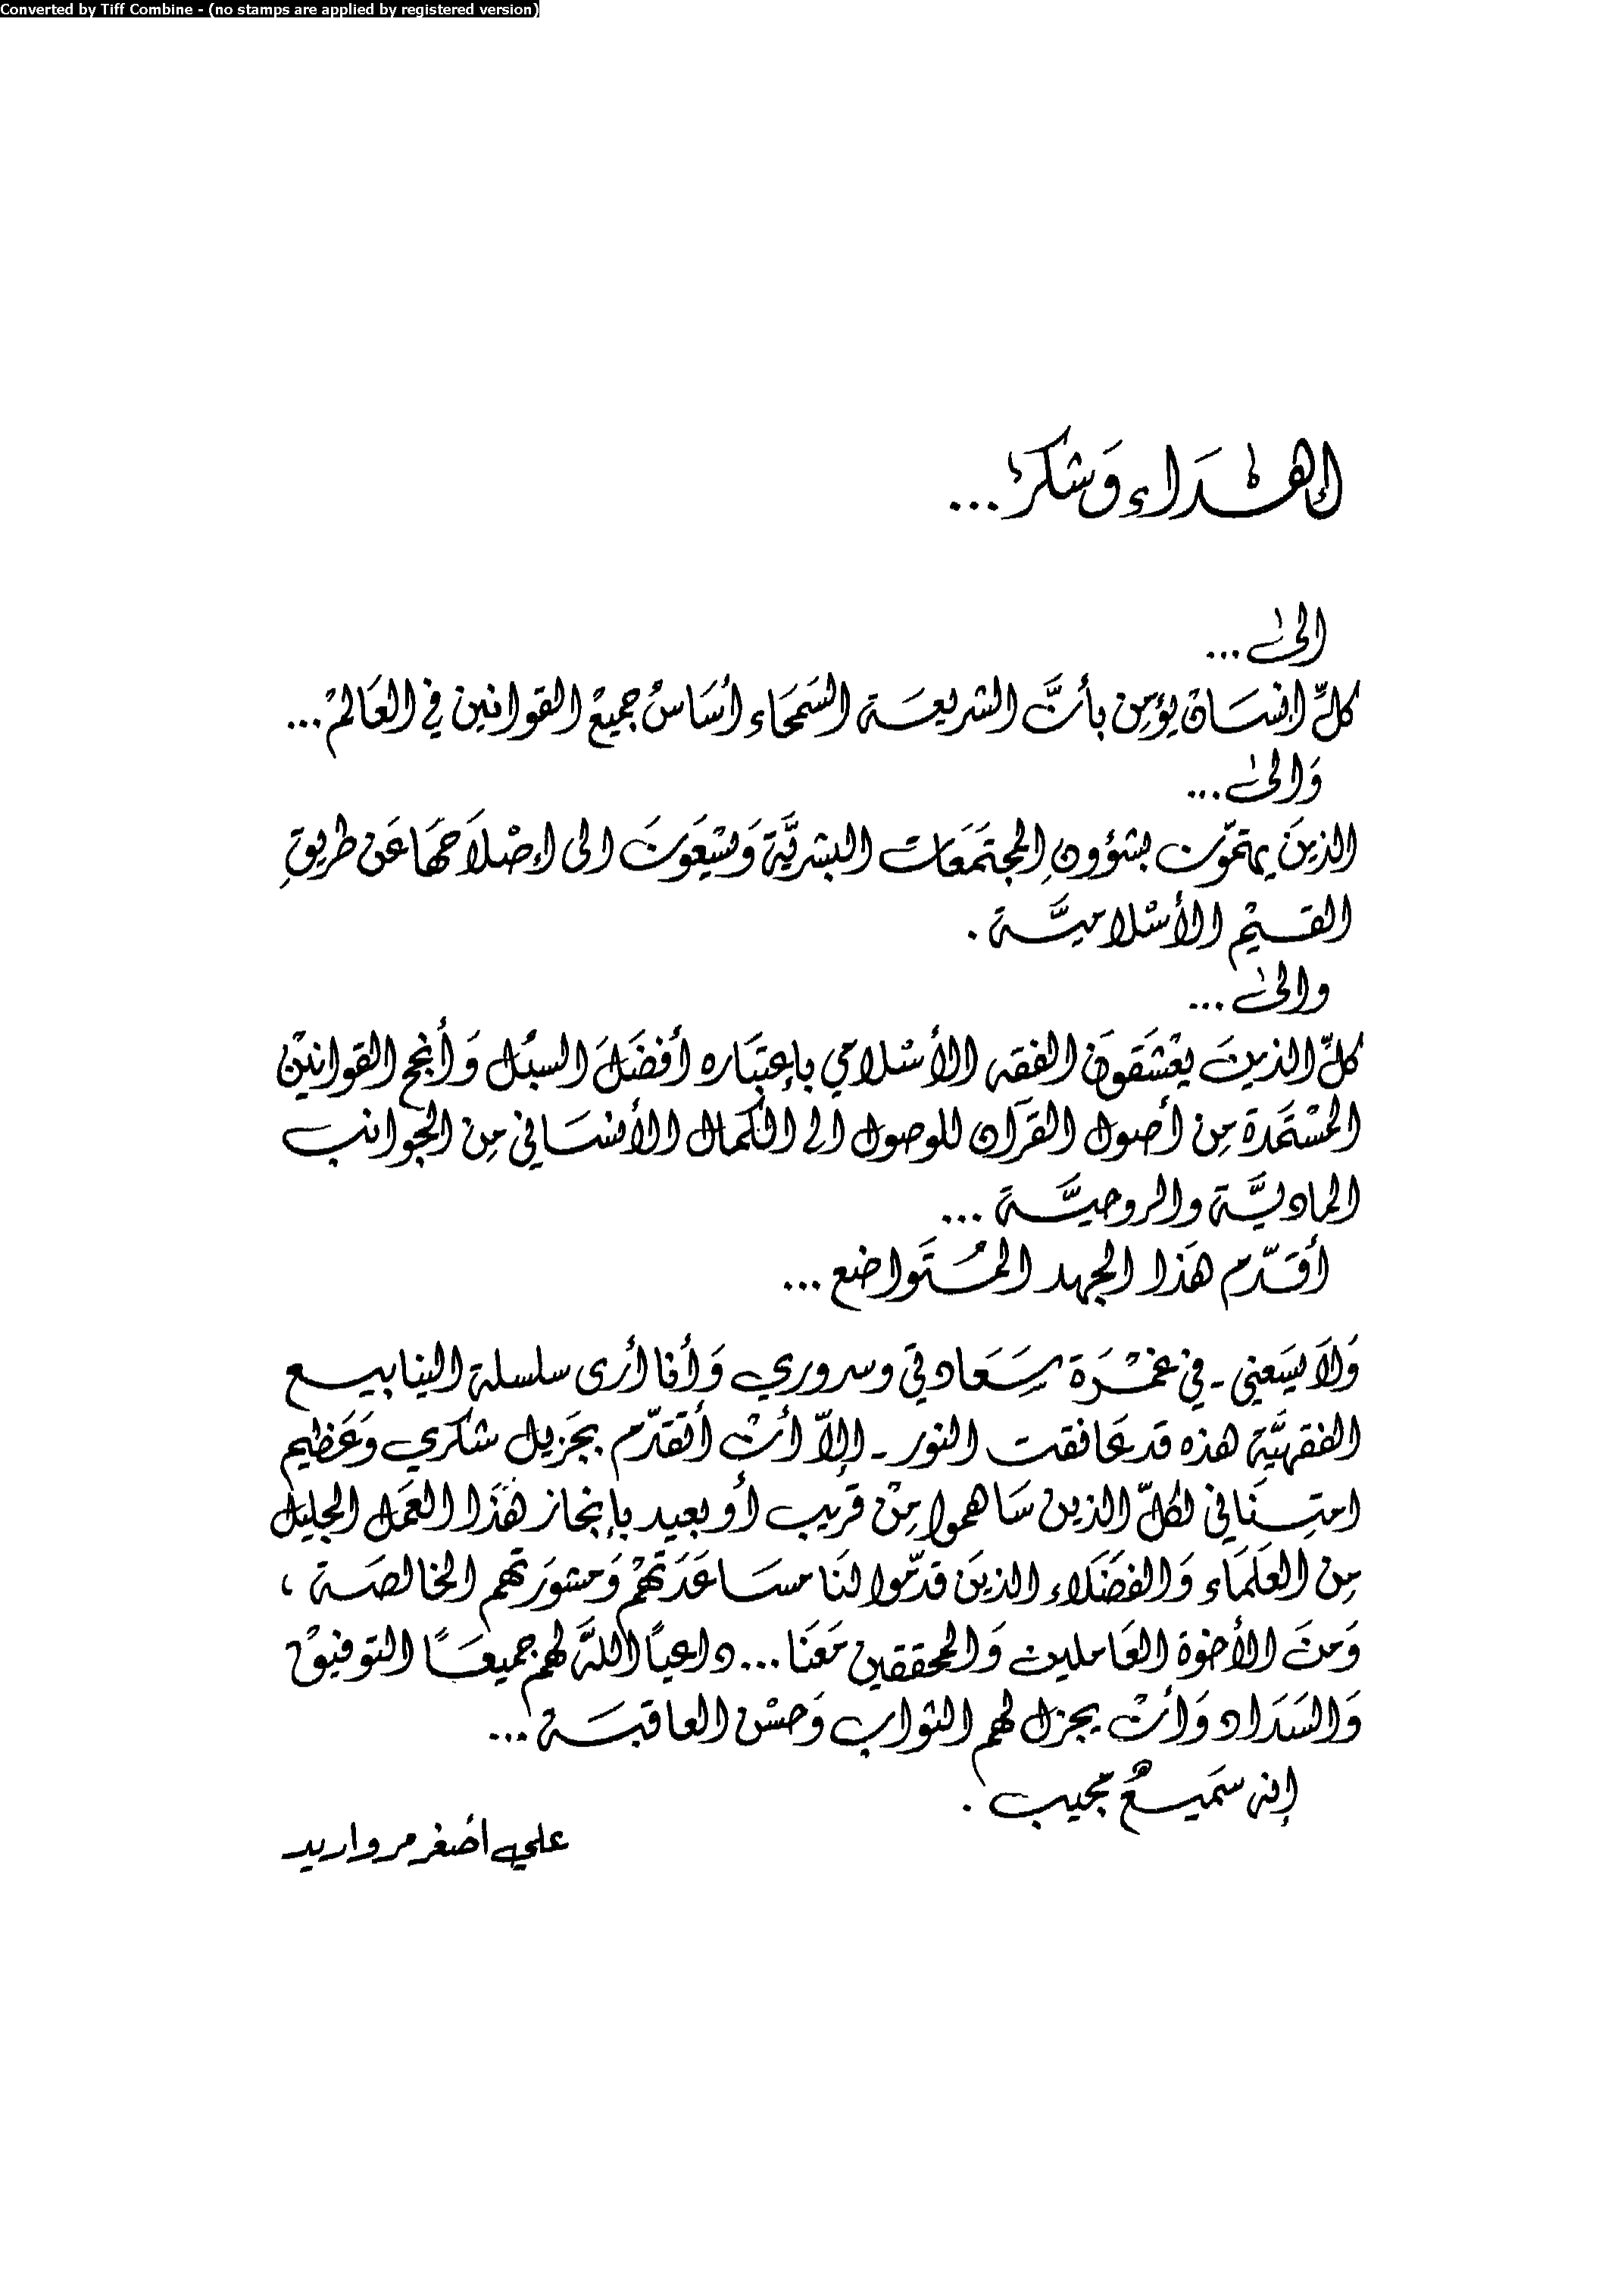 Converted by Tiff Combine - (no stamps are applied by registered version)
إهداء وَشكر...
الىٰ...
كلِّ انسَان يؤمِن بأنَّ الشريعَة السَمحَاء أسَاسُ جميعْ القوانين في العَالمْ...
وَالىٰ...
الذينَ يهتمّون بشؤونِ المجتَمَعات البشريَّة وَيسْعَونَ الى إصْلاَحهَا عَن طريقِ
القيمْ الأسْلاميَّة .
والىٰ...
كلِّ الذينَ يعْشَقونَ الفقه الأسْلامي بإعتبَاره أفضَلَ السبُل وَأنجح القوانينْ
المسْتمَدة مِن أصول القرآن للوصول الى الكمال الأنسَاني مِن الجوانب
الماديَّة والروحيَّة ...
أقدّم هَذا الجهد المُتَواضع ...
وَلاَ يسَعني - في غمْرَة سَعَادتي وسروري وَأنا أرى سلسلة الينابيع
الفقهيَّة هذه قد عَانقت النور - إلاّ أنْ أتقدّم بجَزيل شكري وَعَظيم
امتِنَاني لكلّ الذين سَاهموا مِنْ قريب أو بعيد بإنجاز هَذا العَمَل الجليل
مِن العلَمَاء وَالفضَلاء الذينَ قدّموا لنَا مسَاعَدَتهُمْ وَمشورَتهم الخالصَة ،
وَمنَ الأخوة العَاملين وَالمحققين مَعَنا ... داعياً اللهَ لهم جميعَاً التوفيقْ
وَالسَدَاد وَأنْ يجزل لهم الثواب وَحسْن العاقبَة ...
إنه سَميعٌ مجيب .
علي أصغر مرواريد